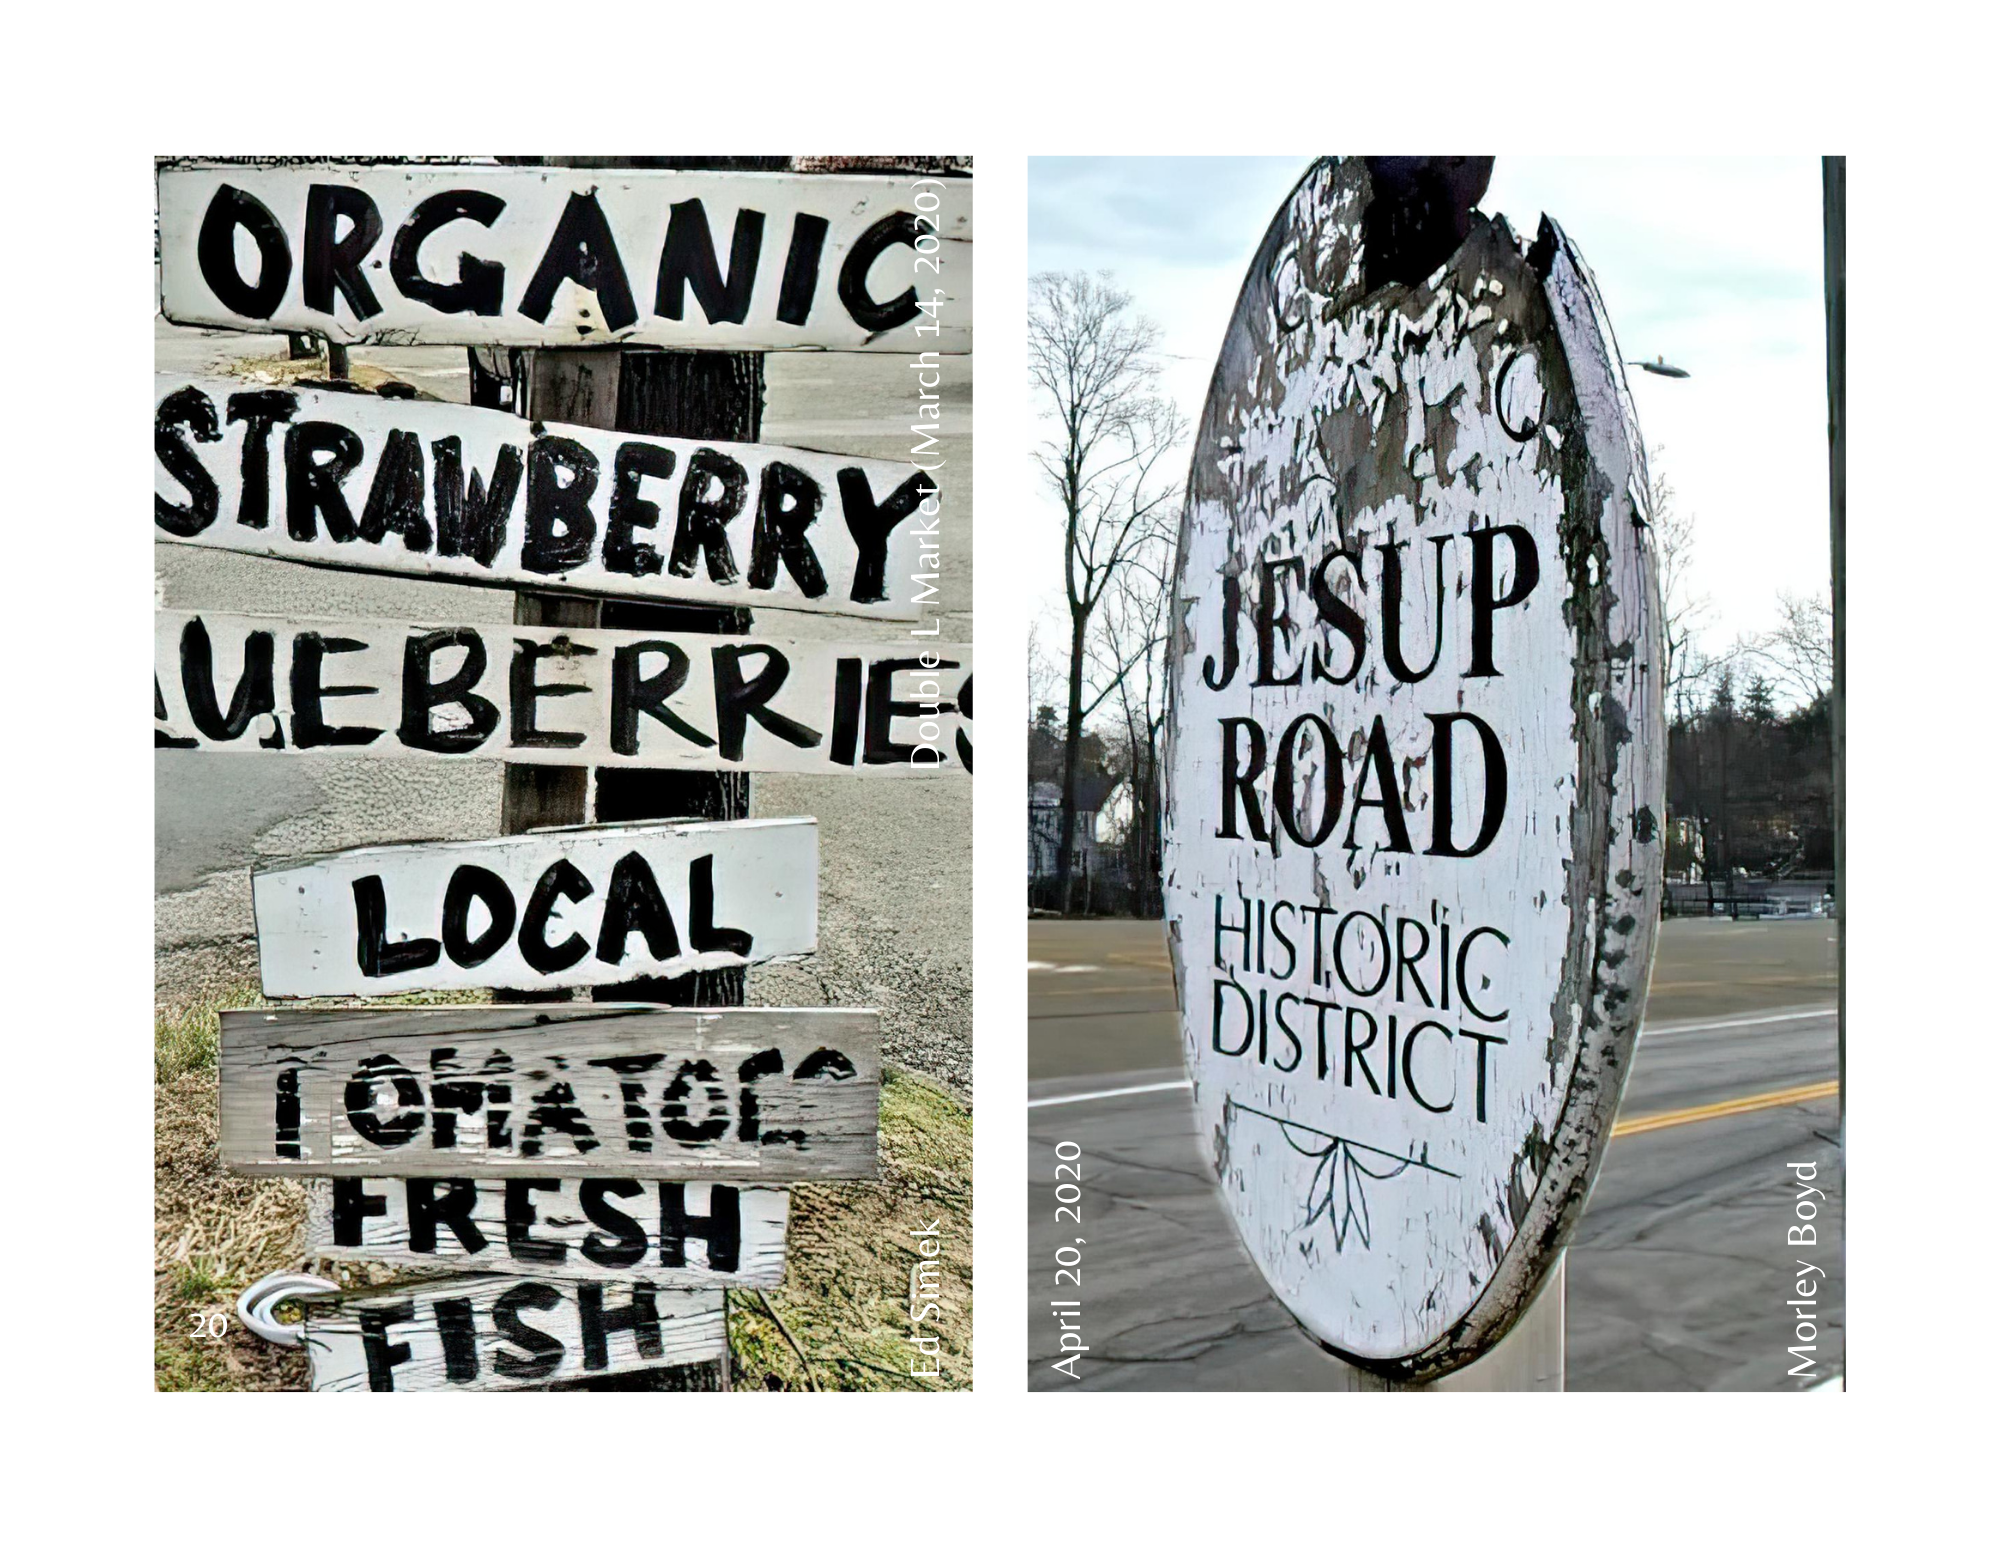 ORGANIC
STRAWBERRY
LUEBERRIES
LOCAL
TOMATOES
FRESH
FISH
20
Double L Market (March 14, 2020)
Ed Simek
JESUP
ROAD
HISTORIC
DISTRICT
April 20, 2020
Morley Boyd